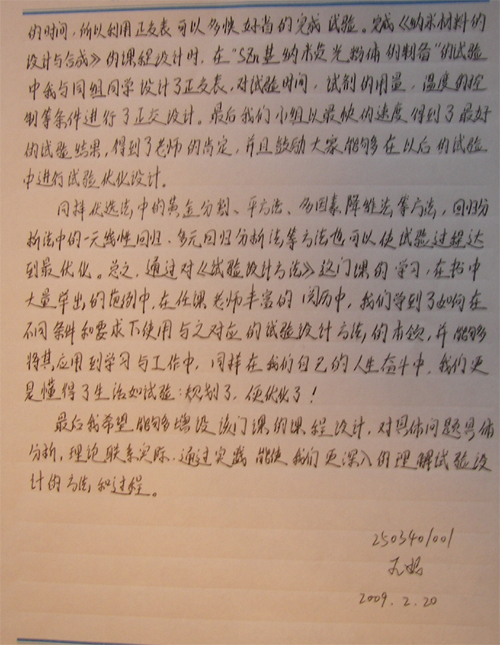 的时间,所以利用正交表可以多快好省的完成试验。完成《纳米材料的
设计与合成》的课程设计时,在“SZn基纳米荧光粉体的制备”的试验
中我与同组同学设计了正交表,对试验时间,试剂的用量,温度的控
制等条件进行了正交设计。最后我们小组以最快的速度得到了最好
的试验结果,得到了老师的肯定,并且鼓励大家能够在以后的试验
中进行试验优化设计。
同样优选法中的黄金分割、平方法、多因素降维法等方法,回归分
析法中的一元线性回归、多元回归分析法等方法也可以使试验过程达
到最优化。总之,通过对《试验设计方法》这门课的学习,在书中
大量举出的范例中,在任课老师丰富的阅历中,我们学到了如何在
不同条件和要求下使用与之对应的试验设计方法的本领,并能够
将其应用到学习与工作中,同样在我们自己的人生奋斗中,我们更
是懂得了生活如试验:规划了,便优化了!
最后我希望能够增设该门课的课程设计,对具体问题具体
分析,理论联系实际.通过实践能使我们更深入的理解试验设
计的方法和过程。
250340/001
2009.2.20